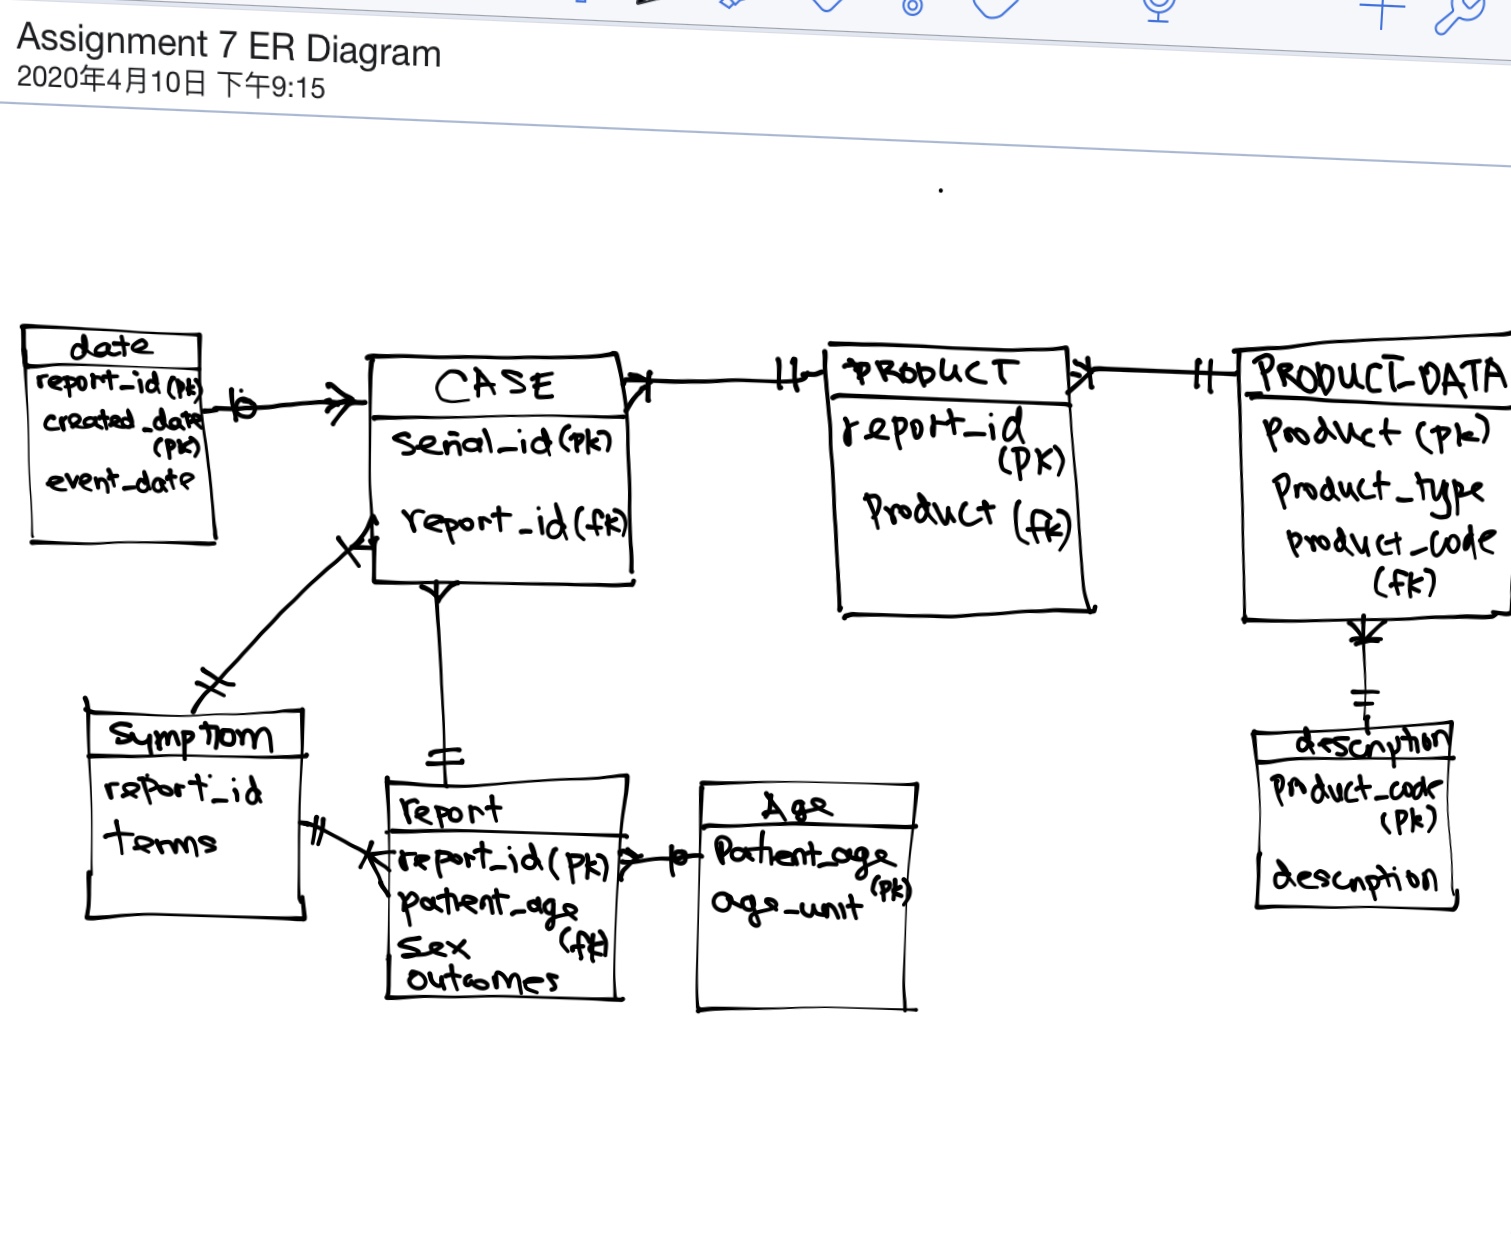 Assignment 7 ER Diagram
2020年4月10日 下午9:15
date
report_id (pk)
created_date
(pk)
event_date
CASE
serial_id (pk)
report_id (fk)
PRODUCT
report_id
(PK)
Product (fk)
PRODUCT_DATA
Product (pk)
Product_type
product_code
(fk)
Symptom
report_id
terms
report
report_id (pk)
patient_age
(fk)
sex
outcomes
Age
Patient_age
(pk)
age_unit
description
product_code
(pk)
description